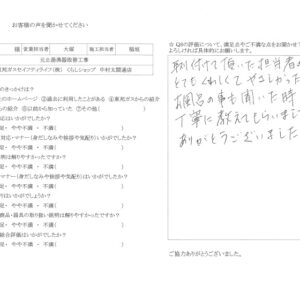 お客様の声を聞かせてください
様 営業担当者 大塚 施工担当者 稲垣
元止湯沸器改善工事
邦ガスセイフティライフ(株) くらしショップ 中村太閤通店
きっかけは?
のホームページ ②過去に利用したことがある ③東邦ガスからの紹介
らの紹介 ⑥以前から知っていた ⑦その他( )
対応はいかがでしたか?
足・ やや不満 ・ 不満( )
マナー(身だしなみや挨拶や気配り)いかがでしたか?
足・ やや不満 ・ 不満( )
説明は解りやすかったですか?
足・ やや不満 ・ 不満( )
マナー(身だしなみや挨拶や気配り)はいかがでしたか?
足・ やや不満 ・ 不満( )
りはいかがでしたか?
足・ やや不満 ・ 不満( )
商品・器具の取り扱い説明は解りやすかったですか?
足・ やや不満 ・ 不満( )
総合評価はいかがでしたか?
足・ やや不満 ・ 不満( )
☆ Q8の評価について、満足点やご不満な点をお聞かせ下
よろしければ具体的にお願いします。
取り付けて頂いた担当者の
とてもくわしくて やさしかった
お風呂の事も聞いた時
丁寧に教えてもらいまし
ありがとうございました
ご協力ありがとうございました。